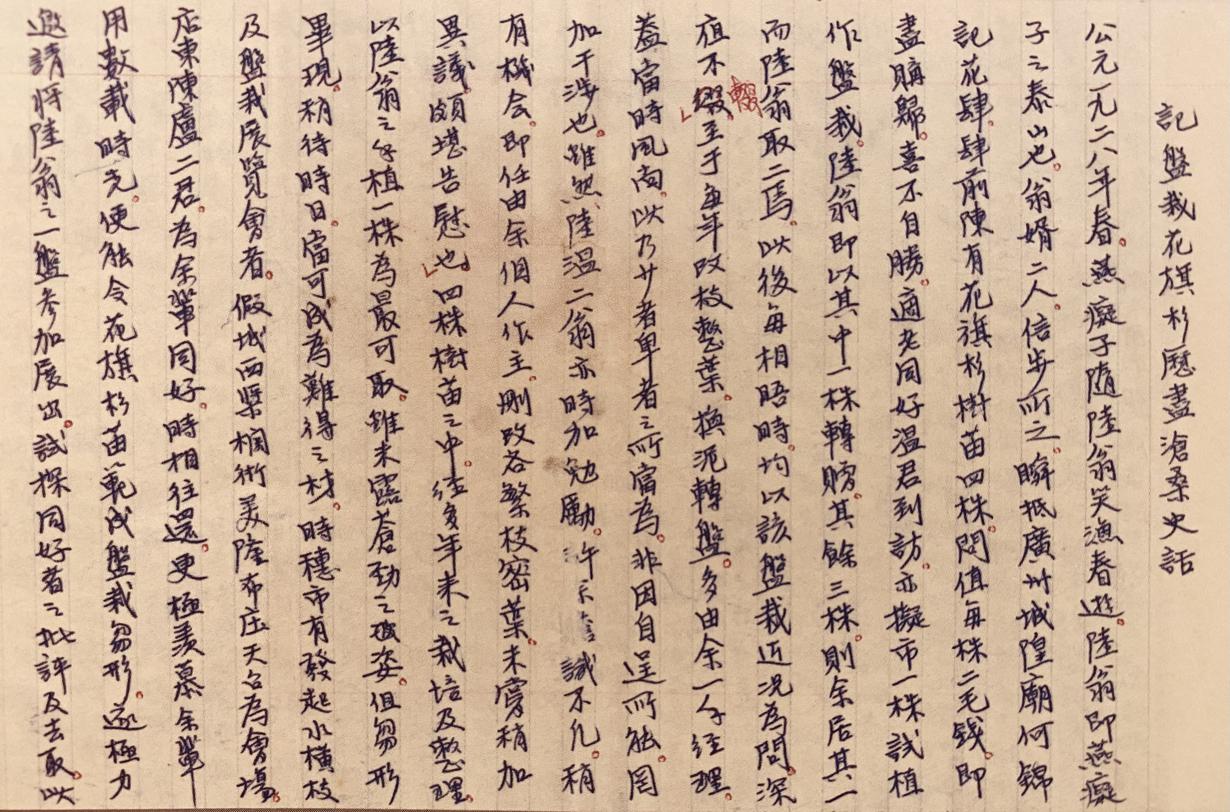 記盤栽花旗杉歷盡滄桑史話
公元一九二八年春。燕癡子隨陸翁笑漁春遊。陸翁即燕癡
子之泰山也。翁婿二人。信步所之。瞬抵廣州城隍廟何錦
記花肆。肆前陳有花旗杉樹苗四株。問值每株二毛錢。即
盡購歸。喜不自勝。適老同好溫君到訪。亦擬市一株試植
作盤栽。陸翁即以其中一株轉贈。其餘三株。則余居其一
而陸翁取二焉。以後每相晤時。均以該盤栽近況為問。深
殖不綴至于每年改枝整葉。換泥轉盤。多由余一人經理。
輟
蓋當時風尚。以乃少者卑者之所當為。非因自逞所能。罔
加干涉也。雖然。陸溫二翁亦時加勉勵。許示 識不凡。稍
有機會。即任由余個人作主。刪改各繁枝密葉。未嘗稍加
異議。頗堪告慰也。四株樹苗之中。經多年來之栽培及整理。
以陸翁之手植一株為最可取。雖未露蒼勁之姿。但芻形
畢現。稍待時日。當可成為難得之材。時穗市有發起水橫枝
及盤栽展覽會者。假城西槳欄街美隆布庄天台為會場。
店東陳盧二君。為余輩同好。時相往還。更極羨慕余輩
用數載時光。便能令花旗杉苗範成盤栽芻形。遂極力
邀請將陸翁之一盤參加展出。試探同好者之批評及去取。以